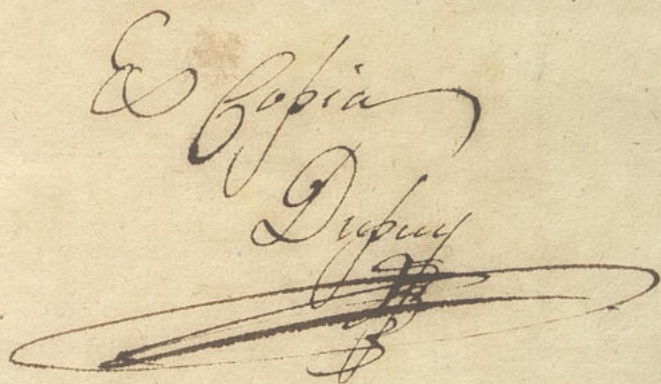 Es Copia
Dupuy